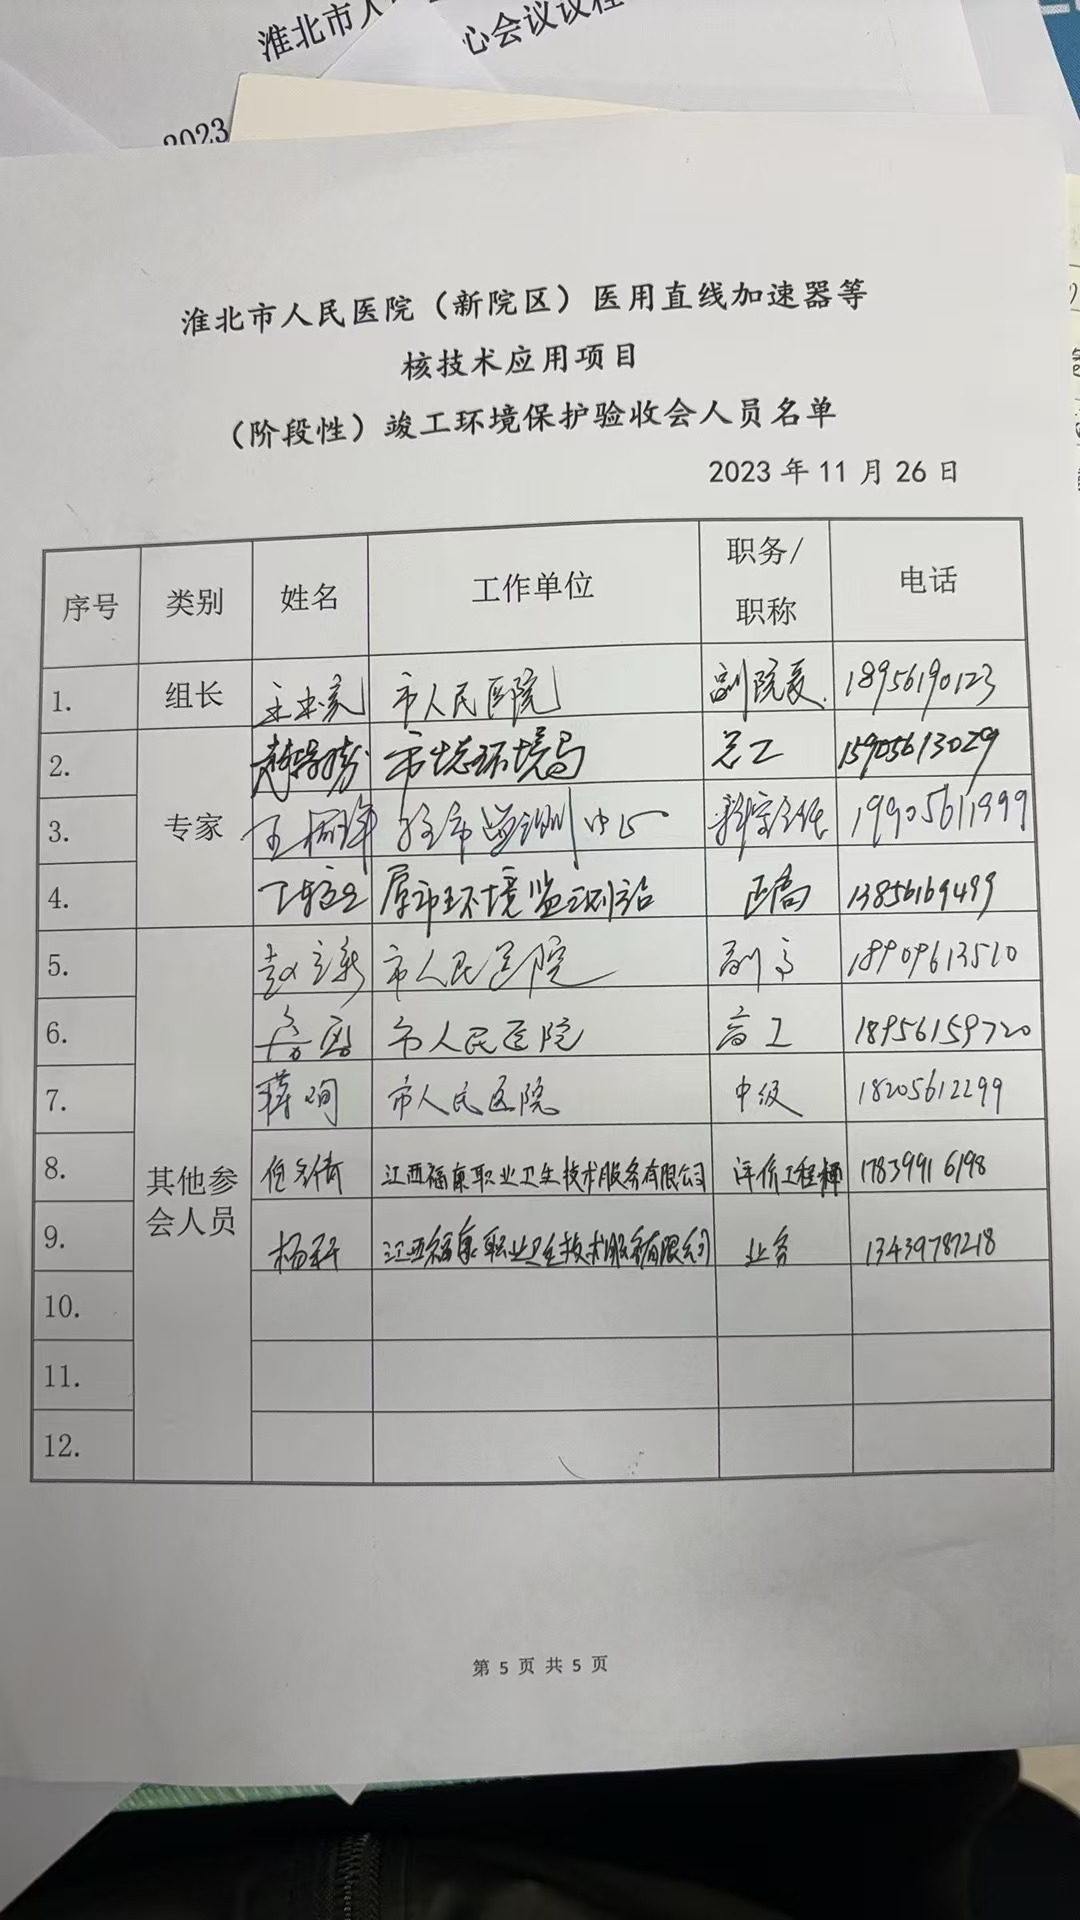 淮北市人
心会议议程
2023
淮北市人民医院（新院区）医用直线加速器等
核技术应用项目
（阶段性）竣工环境保护验收会人员名单
2023 年 11 月 26 日
序号 类别 姓名 工作单位 职务/职称 电话
1. 组长 市人民医院 副院长 18956190123
2. 市生态环境局 总工 15905613029
专家
3. 19905611999
4. 环境监测站 正高 13856169499
5. 赵立新 市人民医院 副高 18909613510
6. 市人民医院 高工 18956159720
7. 蒋询 市人民医院 中级 18205612299
8. 江西福康职业卫生技术服务有限公司 评价工程师 17839916198
其他参会人员
9. 杨科 江西福康职业卫生技术服务有限公司 业务 13439787218
10.
11.
12.
第 5 页 共 5 页